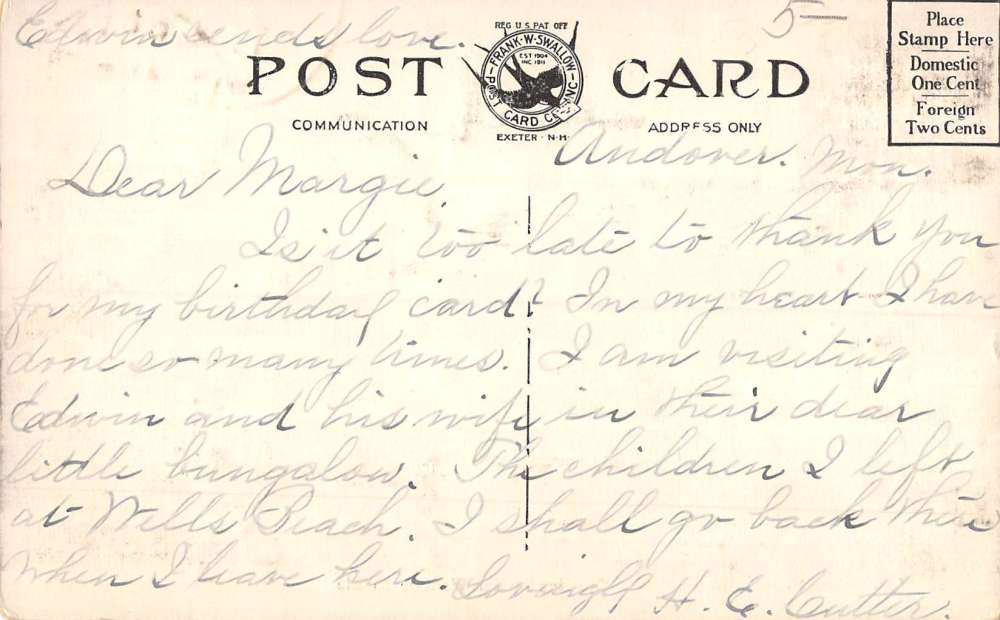 Edwin sends love.
5—
REG U S PAT OFF
FRANK·W·SWALLOW
EST 1904
INC 1911
POST CARD CO INC
EXETER·N·H·
POST CARD
COMMUNICATION
ADDRESS ONLY
Place
Stamp Here
Domestic
One Cent
Foreign
Two Cents
Andover. Mon.
Dear Margie,
Is it too late to thank you
for my birthday card? In my heart I have
done so many times. I am visiting
Edwin and his wife in their dear
little bungalow. The children I left
at Wells Beach. I shall go back there
when I leave here. Lovingly H. E. Cutter.